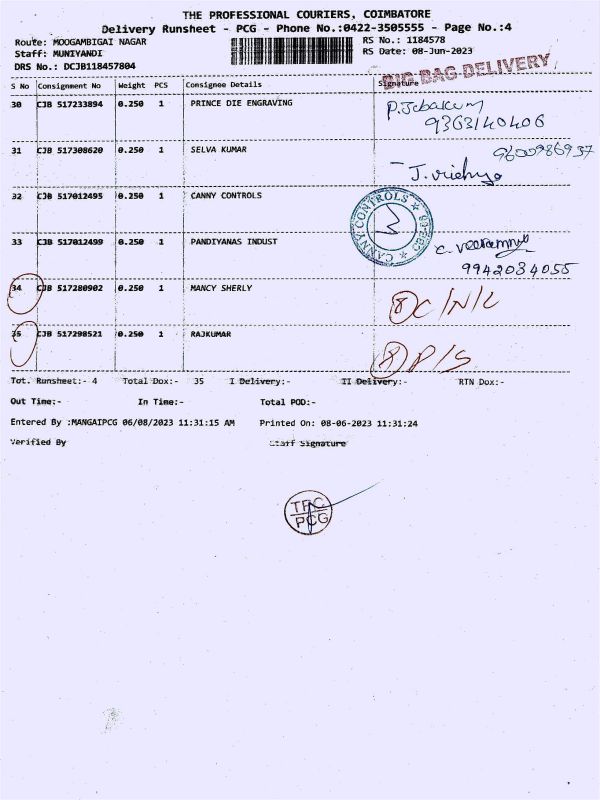 THE PROFESSIONAL COURIERS, COIMBATORE
Delivery Runsheet - PCG - Phone No.:0422-3505555 - Page No.:4
Route: MOOGAMBIGAI NAGAR RS No.: 1184578
Staff: MUNIYANDI RS Date: 08-Jun-2023
DRS No.: DCJB118457804
BIG BAG DELIVERY
S No Consignment No Weight PCS Consignee Details Signature
30 CJB 517233894 0.250 1 PRINCE DIE ENGRAVING P. Jebakum
9363140406
31 CJB 517308620 0.250 1 SELVA KUMAR 9600986937
32 CJB 517012495 0.250 1 CANNY CONTROLS
CANNY CONTROLS
33 CJB 517012499 0.250 1 PANDIYANAS INDUST
9942034055
34 CJB 517280902 0.250 1 MANCY SHERLY C/N/L
35 CJB 517298521 0.250 1 RAJKUMAR P/S
Tot. Runsheet:- 4 Total Dox:- 35 I Delivery:- II Delivery:- RTN Dox:-
Out Time:- In Time:- Total POD:-
Entered By :MANGAIPCG 06/08/2023 11:31:15 AM Printed On: 08-06-2023 11:31:24
Verified By Staff Signature
TPC
PCG